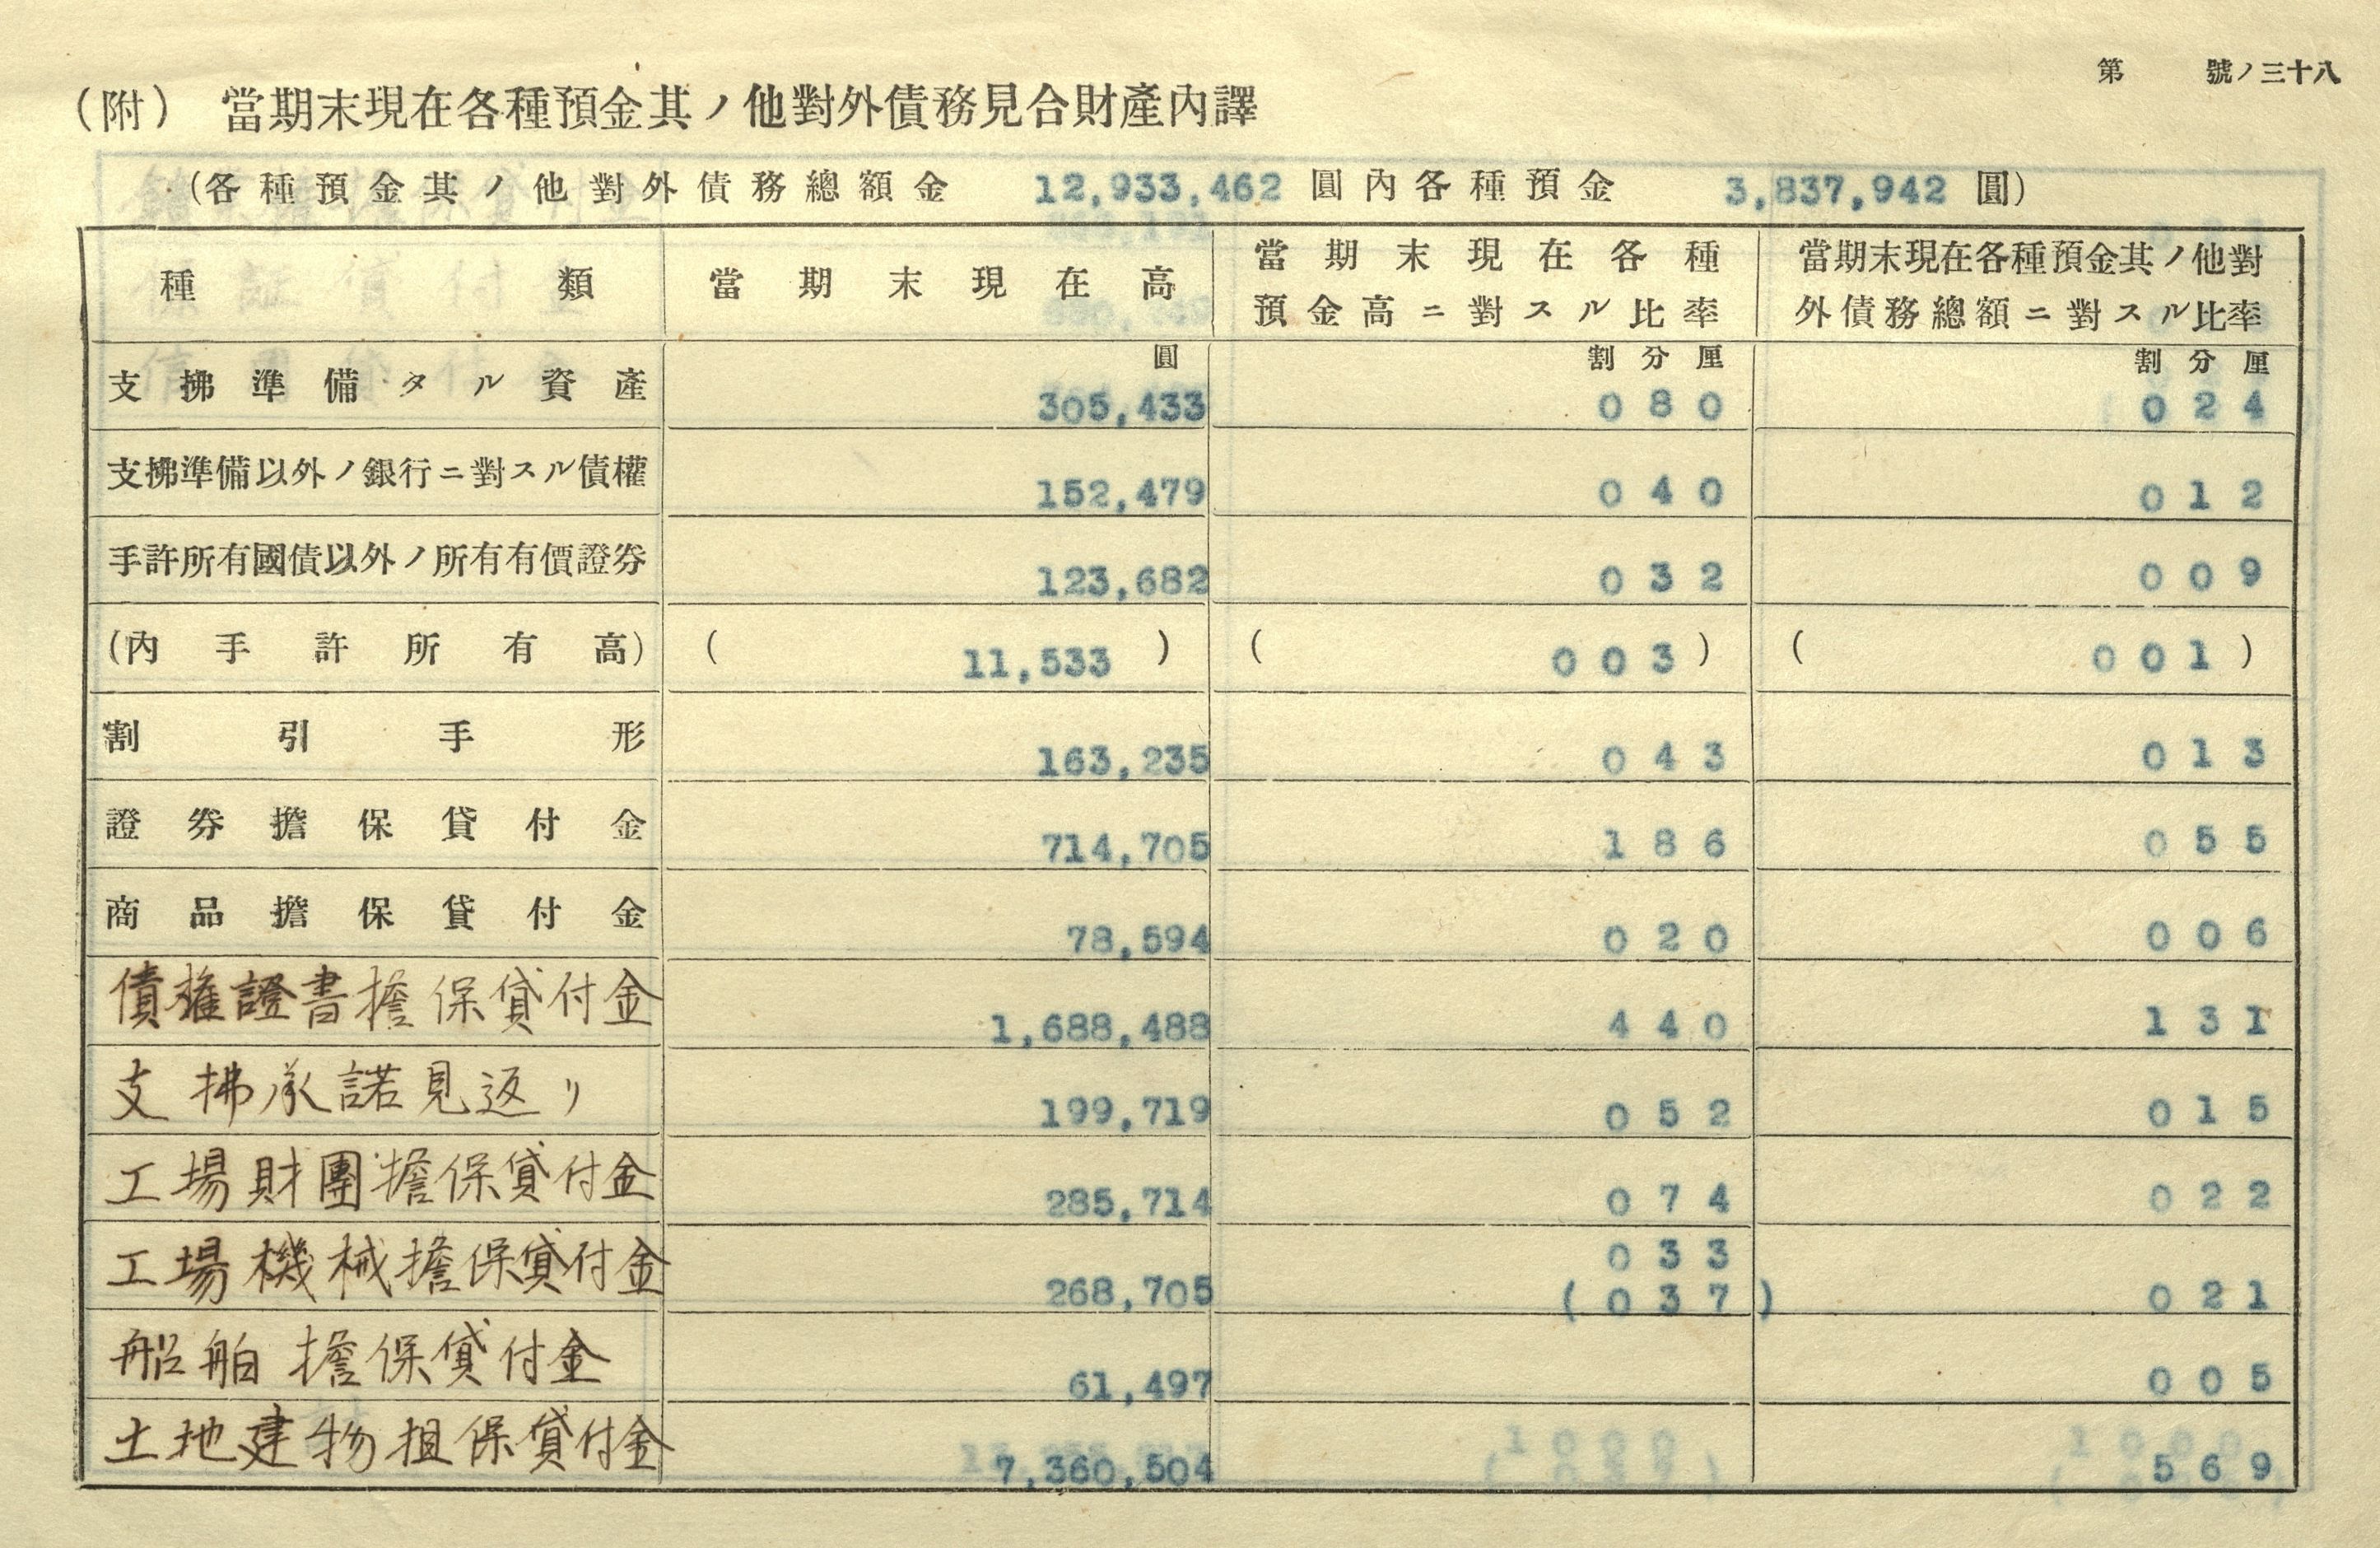 第 號ノ三十八
(附) 當期末現在各種預金其ノ他對外債務見合財產內譯
(各種預金其ノ他對外債務總額金 12,933,462 圓內各種預金 3,837,942 圓)
種類 當期末現在高 當期末現在各種預金高ニ對スル比率 當期末現在各種預金其ノ他對外債務總額ニ對スル比率
圓 割分厘 割分厘
支拂準備タル資產 305,433 080 024
支拂準備以外ノ銀行ニ對スル債權 152,479 040 012
手許所有國債以外ノ所有有價證券 123,682 032 009
(內手許所有高) ( 11,533 ) ( 003 ) ( 001 )
割引手形 163,235 043 013
證券擔保貸付金 714,705 186 055
商品擔保貸付金 78,594 020 006
債權證書擔保貸付金 1,688,488 440 131
支拂承諾見返リ 199,719 052 015
工場財團擔保貸付金 285,714 074 022
工場機械擔保貸付金 268,705 033 (037) 021
船舶擔保貸付金 61,497 005
土地建物担保貸付金 7,360,504 569